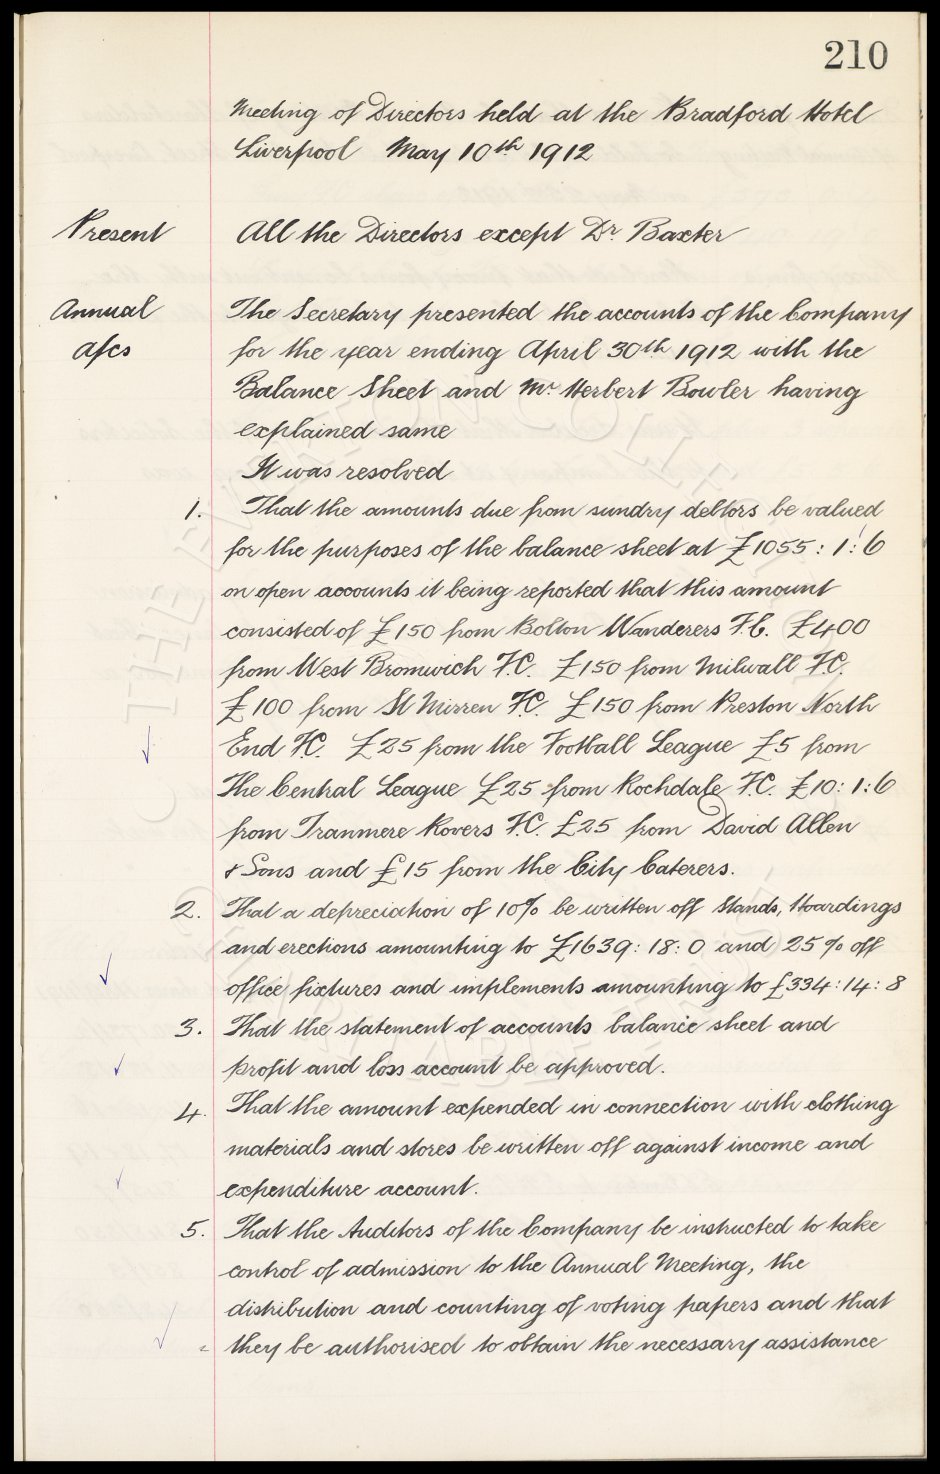 210
Meeting of Directors held at the Bradford Hotel
Liverpool May 10th 1912
Present All the Directors except Dr. Baxter
Annual The Secretary presented the accounts of the Company
a/cs for the year ending April 30th 1912 with the
Balance Sheet and Mr Herbert Bowler having
explained same
It was resolved
1. That the amounts due from sundry debtors be valued
for the purposes of the balance sheet at £1055:1:6
on open accounts it being reported that this amount
consisted of £150 from Bolton Wanderers F.C. £400
from West Bromwich F.C. £150 from Milwall F.C.
£100 from St Mirren F.C. £150 from Preston North
End F.C. £25 from the Football League £5 from
The Central League £25 from Rochdale F.C. £10:1:6
from Tranmere Rovers F.C. £25 from David Allen
& Sons and £15 from the City Caterers.
2. That a depreciation of 10% be written off Stands, Hoardings
and erections amounting to £1639:18:0 and 25% off
office fixtures and implements amounting to £334:14:8
3. That the statement of accounts balance sheet and
profit and loss account be approved.
4. That the amount expended in connection with clothing
materials and stores be written off against income and
expenditure account.
5. That the Auditors of the Company be instructed to take
control of admission to the Annual Meeting, the
distribution and counting of voting papers and that
they be authorised to obtain the necessary assistance
THE EVERTON COLLECTION
CHARITABLE TRUST